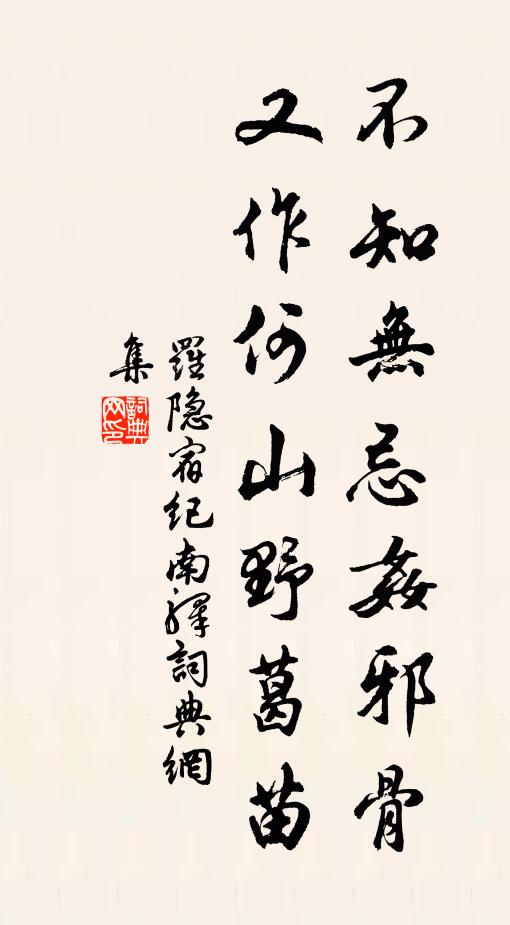 不知無忌姦邪骨
又作何山野葛苗
羅隐宿纪南驛詞典網
集
詞典
网印